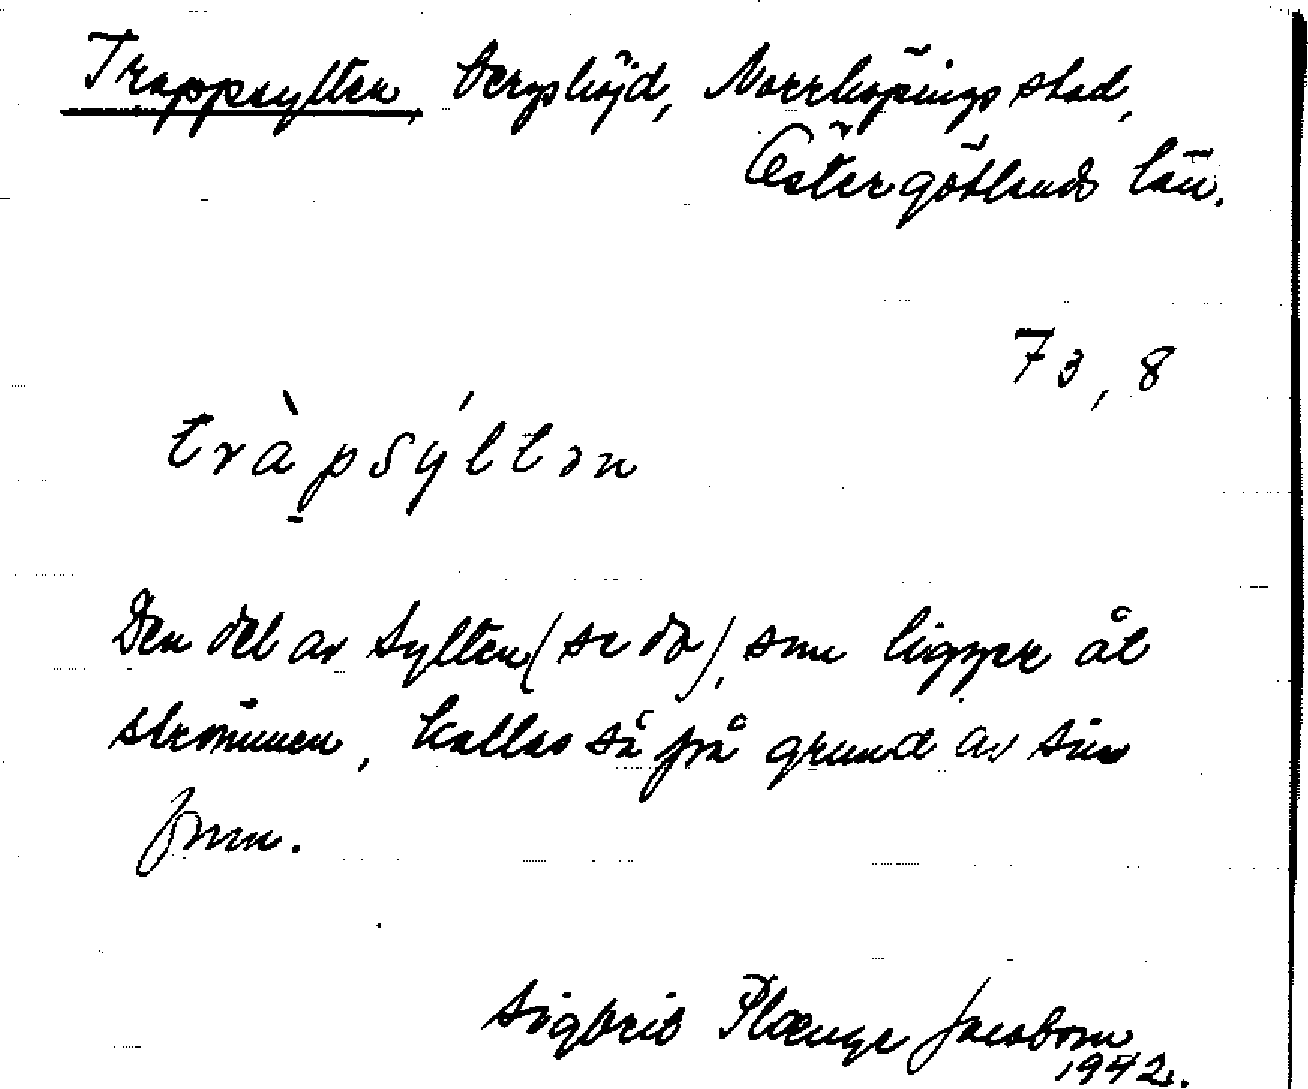 Trappsylten, bergshöjd, Norrköpings stad,
Östergötlands län.
73, 8
tràpsýltən
Den del av Sylten (se do), som ligger åt
strömmen, kallas så på grund av sin
form.
Sigbrit Plænge Jacobson
1942.